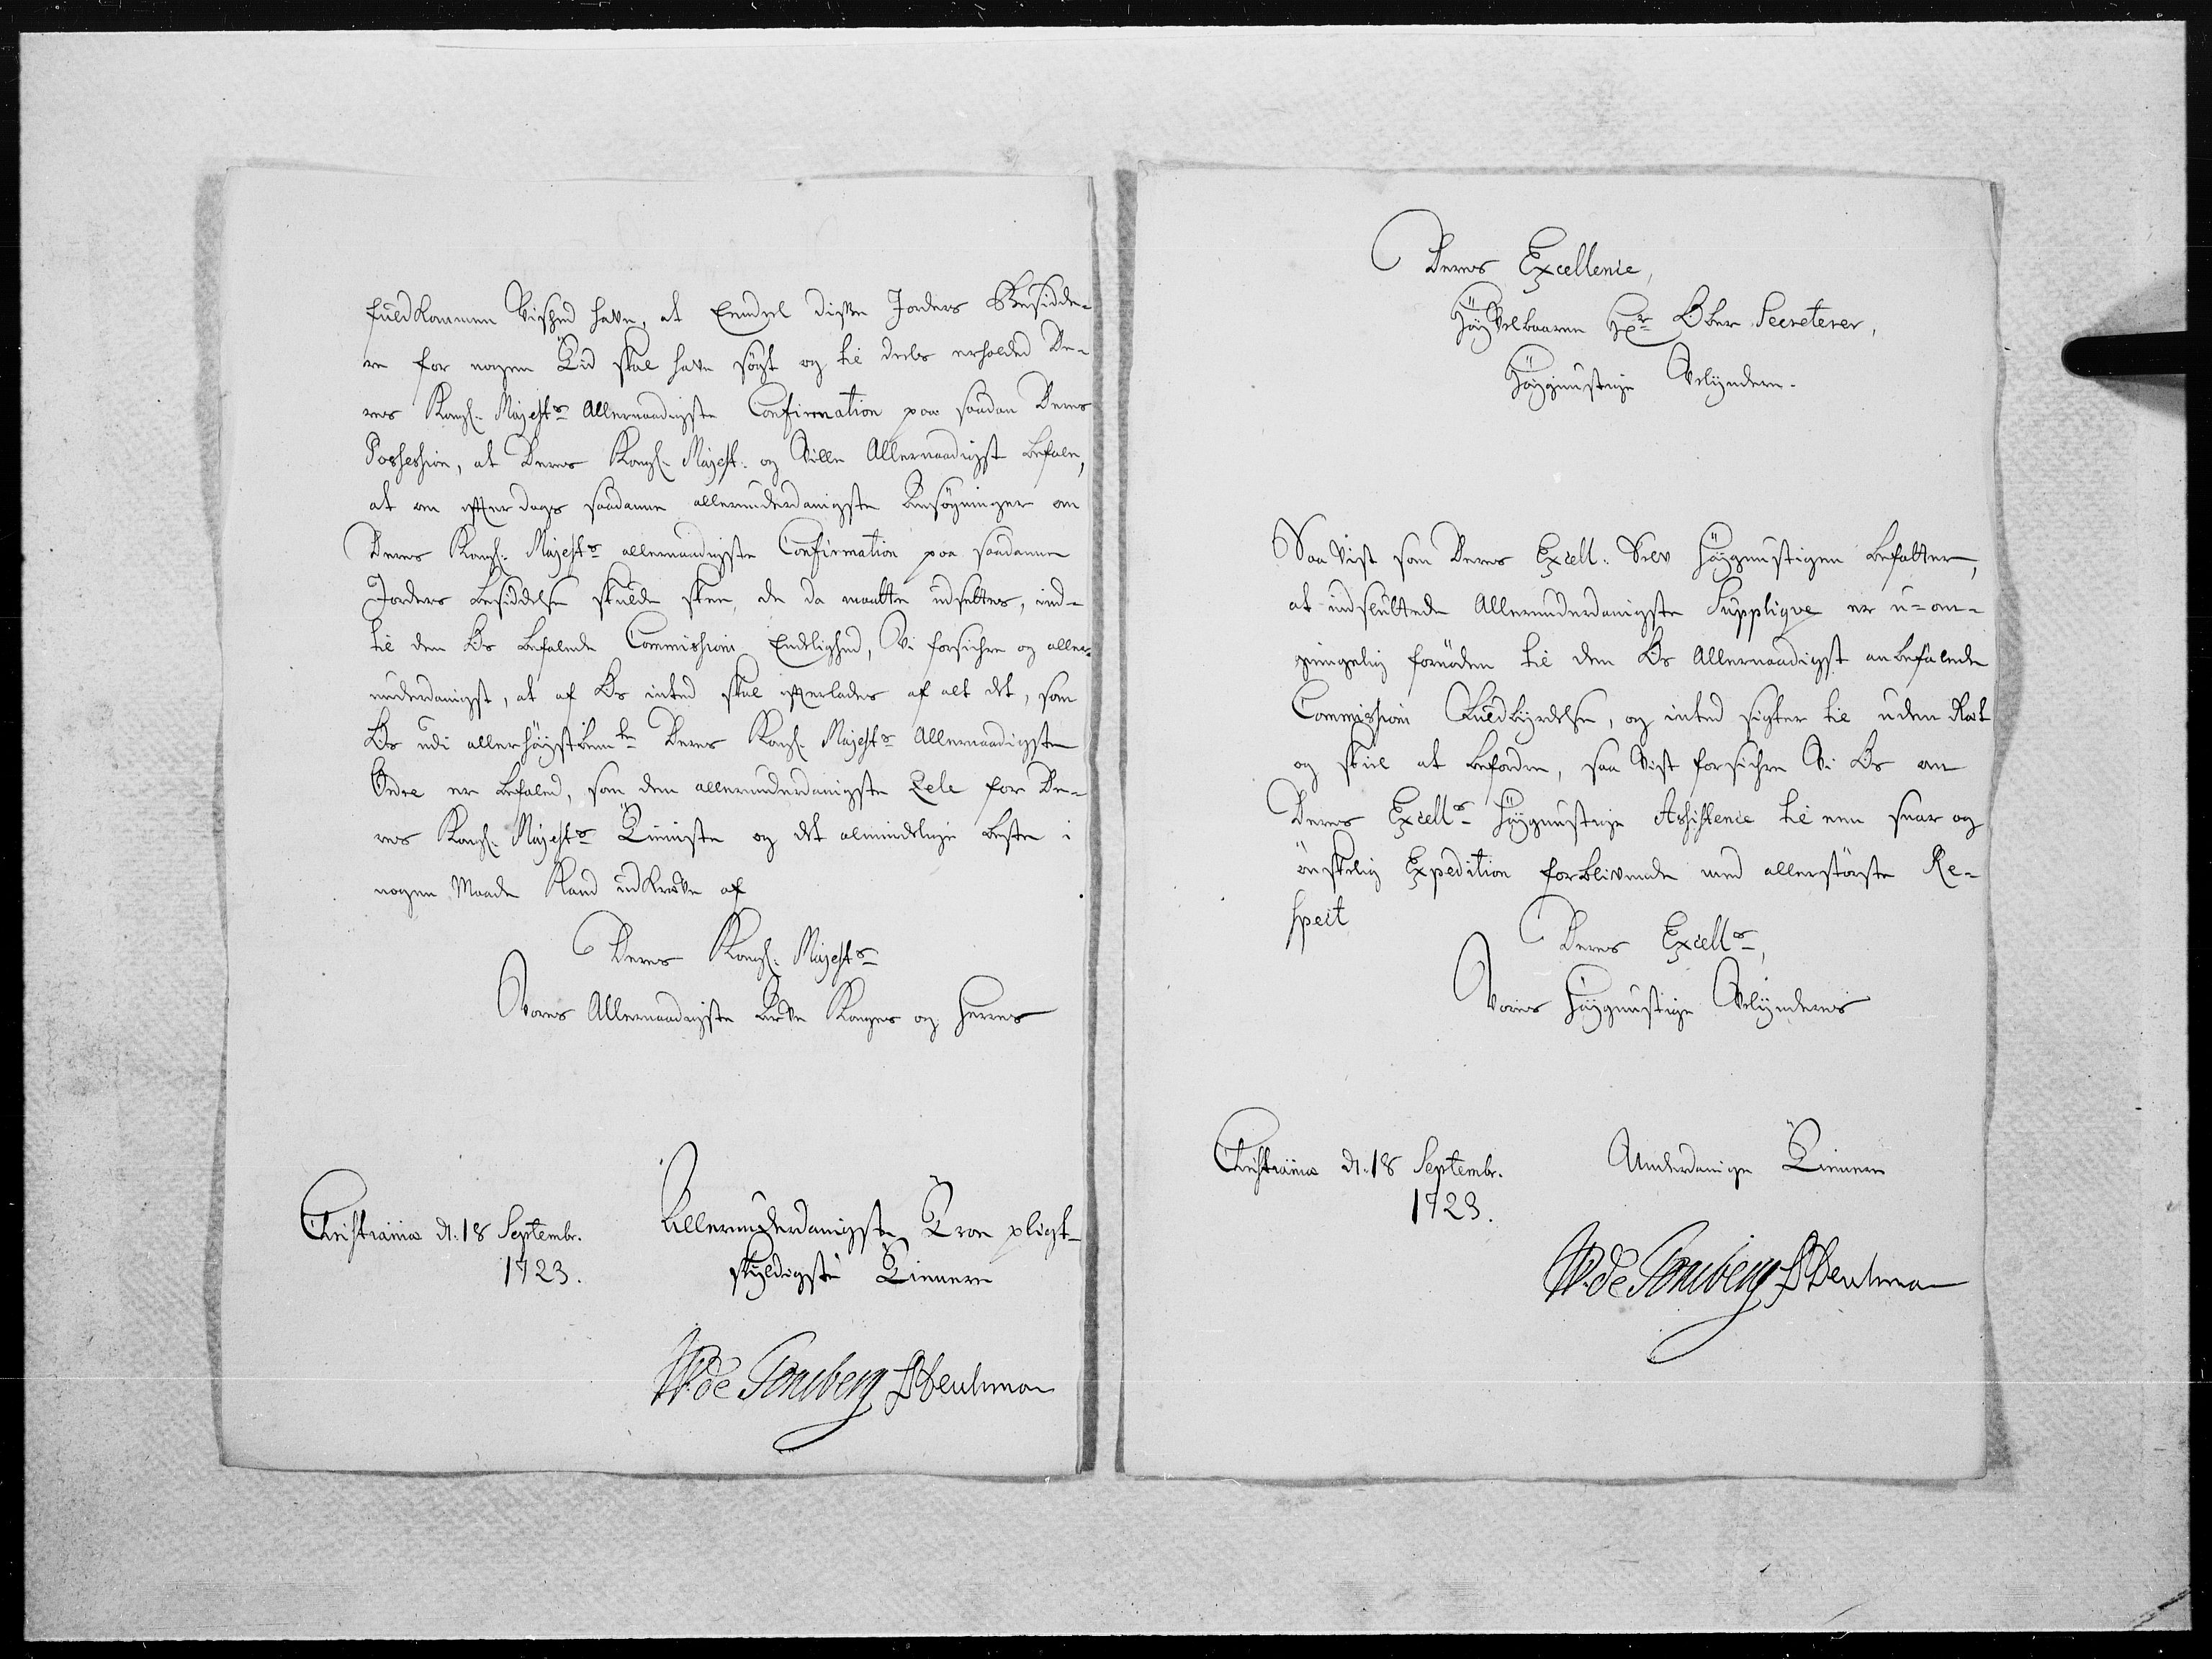 fuldkommen Vished have, at Eendeel disse Jorders Besidde-
re for nogen Tid skal have søgt og til deels erholded De-
res Kongl. Majests Allernaadigste Confirmation paa saadan Deres
Possession, at Deres Kongl. Majest: og Ville Allernaadigst befale,
at om efterdags saadanne allerunderdanigste Ansøgninger om
Deres Kongl: Majests allernaadigste Confirmation paa saadanne
Jorders besiddelse skulde skee, de da maatte udsettes, ind-
til den Os befalede Commissions Endelighed, Vi forsichre og aller-
underdanigst, at af Os inted skal efterlades af alt det, som
Os udi allerhøystbemte Deres Kongl. Majests Allernaadigste
Ordre er befaled, som den allerunderdanigste Zele for De-
res Kongl. Majests Tieniste og det almindelige beste i
nogen Maade Kand udkræve af
Deres Kongl. Majests
Vores Allernaadigste Arve Konges og Herres
Christiania d. 18 Septembr.
1723.
Allerunderdanigste Troe pligt-
skyldigste Tiennere
W. de Tonsberg
Deres Excellence,
HøyVelbaarne Hr Ober Secreterer,
Høygunstige Velynder.
Saa Vist som Deres Excell: Selv høygunstigen befatter,
at indsluttede Allerunderdanigste Supplique er u-om-
gengelig fornøden til den Os Allernaadigst anbefalede
Commissions Fuldbyrdelse, og inted sigter til uden Ret
og skiel at befordre, saa Vist forsichre Vi Os om
Deres Excells høygunstige Assistence til een snar og
ønskelig Expedition forblivende med allerstørste Re-
spect
Deres Excells,
Vores høygunstige Velynderes
Christiania d. 18 Septembr.
1723.
Underdanige Tiennere
W. de Tonsberg